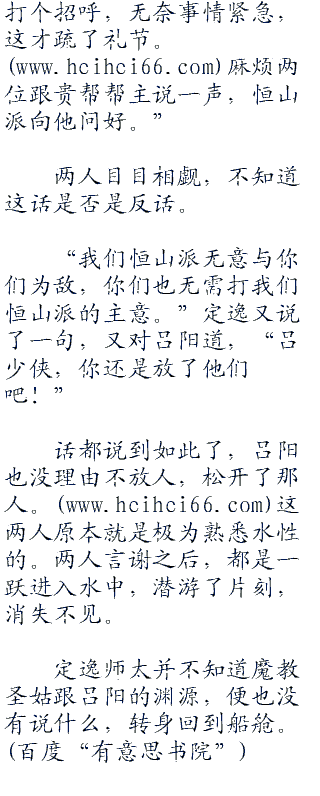 打个招呼，无奈事情紧急，
这才疏了礼节。
(www.hcihci66.com)麻烦两
位跟贵帮帮主说一声，恒山
派向他问好。”
两人目目相觑，不知道
这话是否是反话。
“我们恒山派无意与你
们为敌，你们也无需打我们
恒山派的主意。”定逸又说
了一句，又对吕阳道，“吕
少侠，你还是放了他们
吧！”
话都说到如此了，吕阳
也没理由不放人，松开了那
人。(www.hcihci66.com)这
两人原本就是极为熟悉水性
的。两人言谢之后，都是一
跃进入水中，潜游了片刻，
消失不见。
定逸师太并不知道魔教
圣姑跟吕阳的渊源，便也没
有说什么，转身回到船舱。
(百度“有意思书院”)